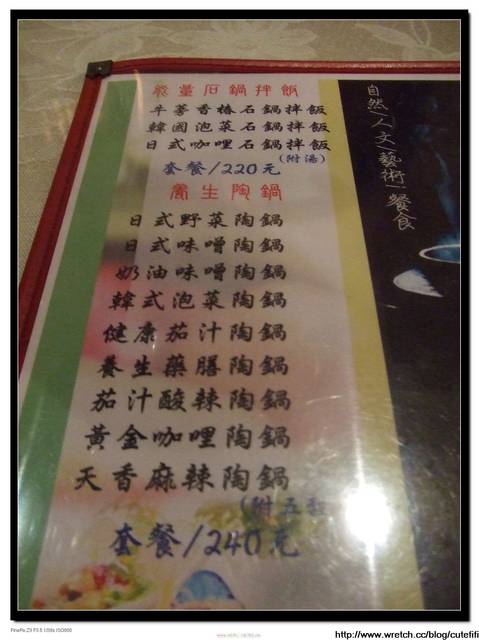 能量石鍋拌飯
牛蒡香椿石鍋拌飯
韓國泡菜石鍋拌飯
日式咖哩石鍋拌飯
(附湯)
套餐/220元
養生陶鍋
日式野菜陶鍋
日式味噌陶鍋
奶油味噌陶鍋
韓式泡菜陶鍋
健康茄汁陶鍋
養生藥膳陶鍋
茄汁酸辣陶鍋
黃金咖哩陶鍋
天香麻辣陶鍋
(附五穀
套餐/240元
自然/人文/藝術/餐食
http://www.wretch.cc/blog/cutefifi